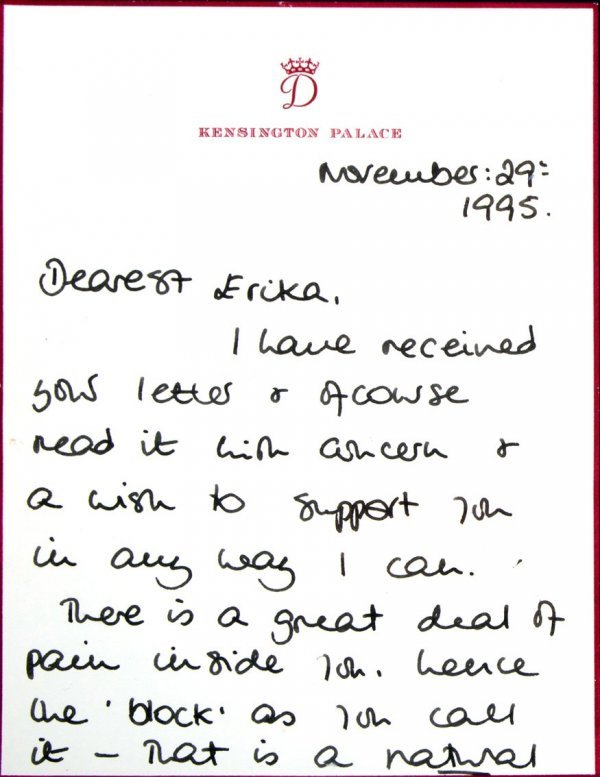 D
KENSINGTON PALACE
November: 29:
1995.
Dearest Erika,
I have received
your letter & of course
read it with concern &
a wish to support you
in any way I can.
There is a great deal of
pain inside you, hence
the 'block' as you call
it – That is a natural